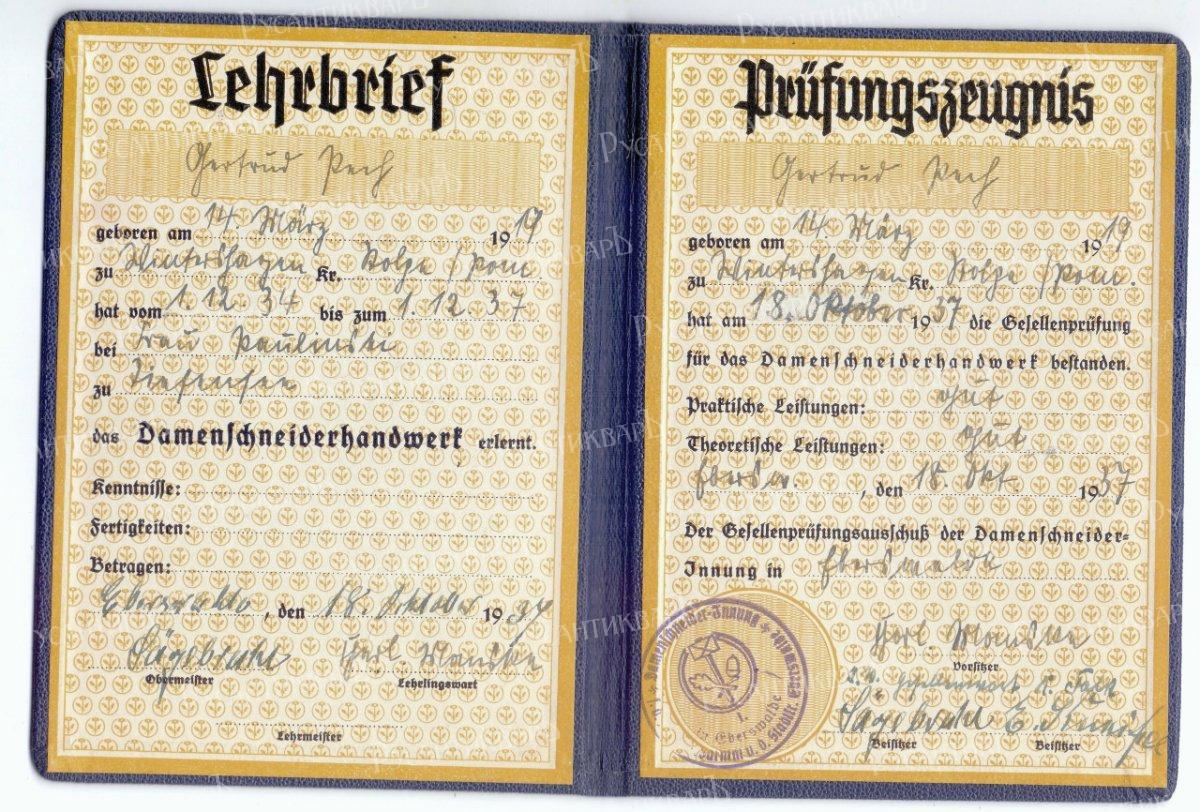 Lehrbrief
Gertrud Pech
geboren am 14. März 1919
zu Wintershagen Kr. Stolpe /Pom
hat vom 1.12.34 bis zum 1.12.37
bei Frau Paulinski
zu Tiefensee
das Damenschneiderhandwerk erlernt.
Kenntnisse:
Fertigkeiten:
Betragen:
Eberswalde, den 18. Oktober 1937
Sägebrecht Herl. Manske
Obermeister Lehrlingswart
Lehrmeister
Prüfungszeugnis
Gertrud Pech
geboren am 14. März 1919
zu Wintershagen Kr. Stolpe /Pom.
hat am 18. Oktober 1937 die Gesellenprüfung
für das Damenschneiderhandwerk bestanden.
Praktische Leistungen: gut
Theoretische Leistungen: gut
Ebersw., den 18. Okt 1937
Der Gesellenprüfungsausschuß der Damenschneider-
Innung in Eberswalde
Manske
Vorsitzer
Beisitzer Beisitzer
Damenschneider-Innung
Eberswalde
РусАнтикваръ